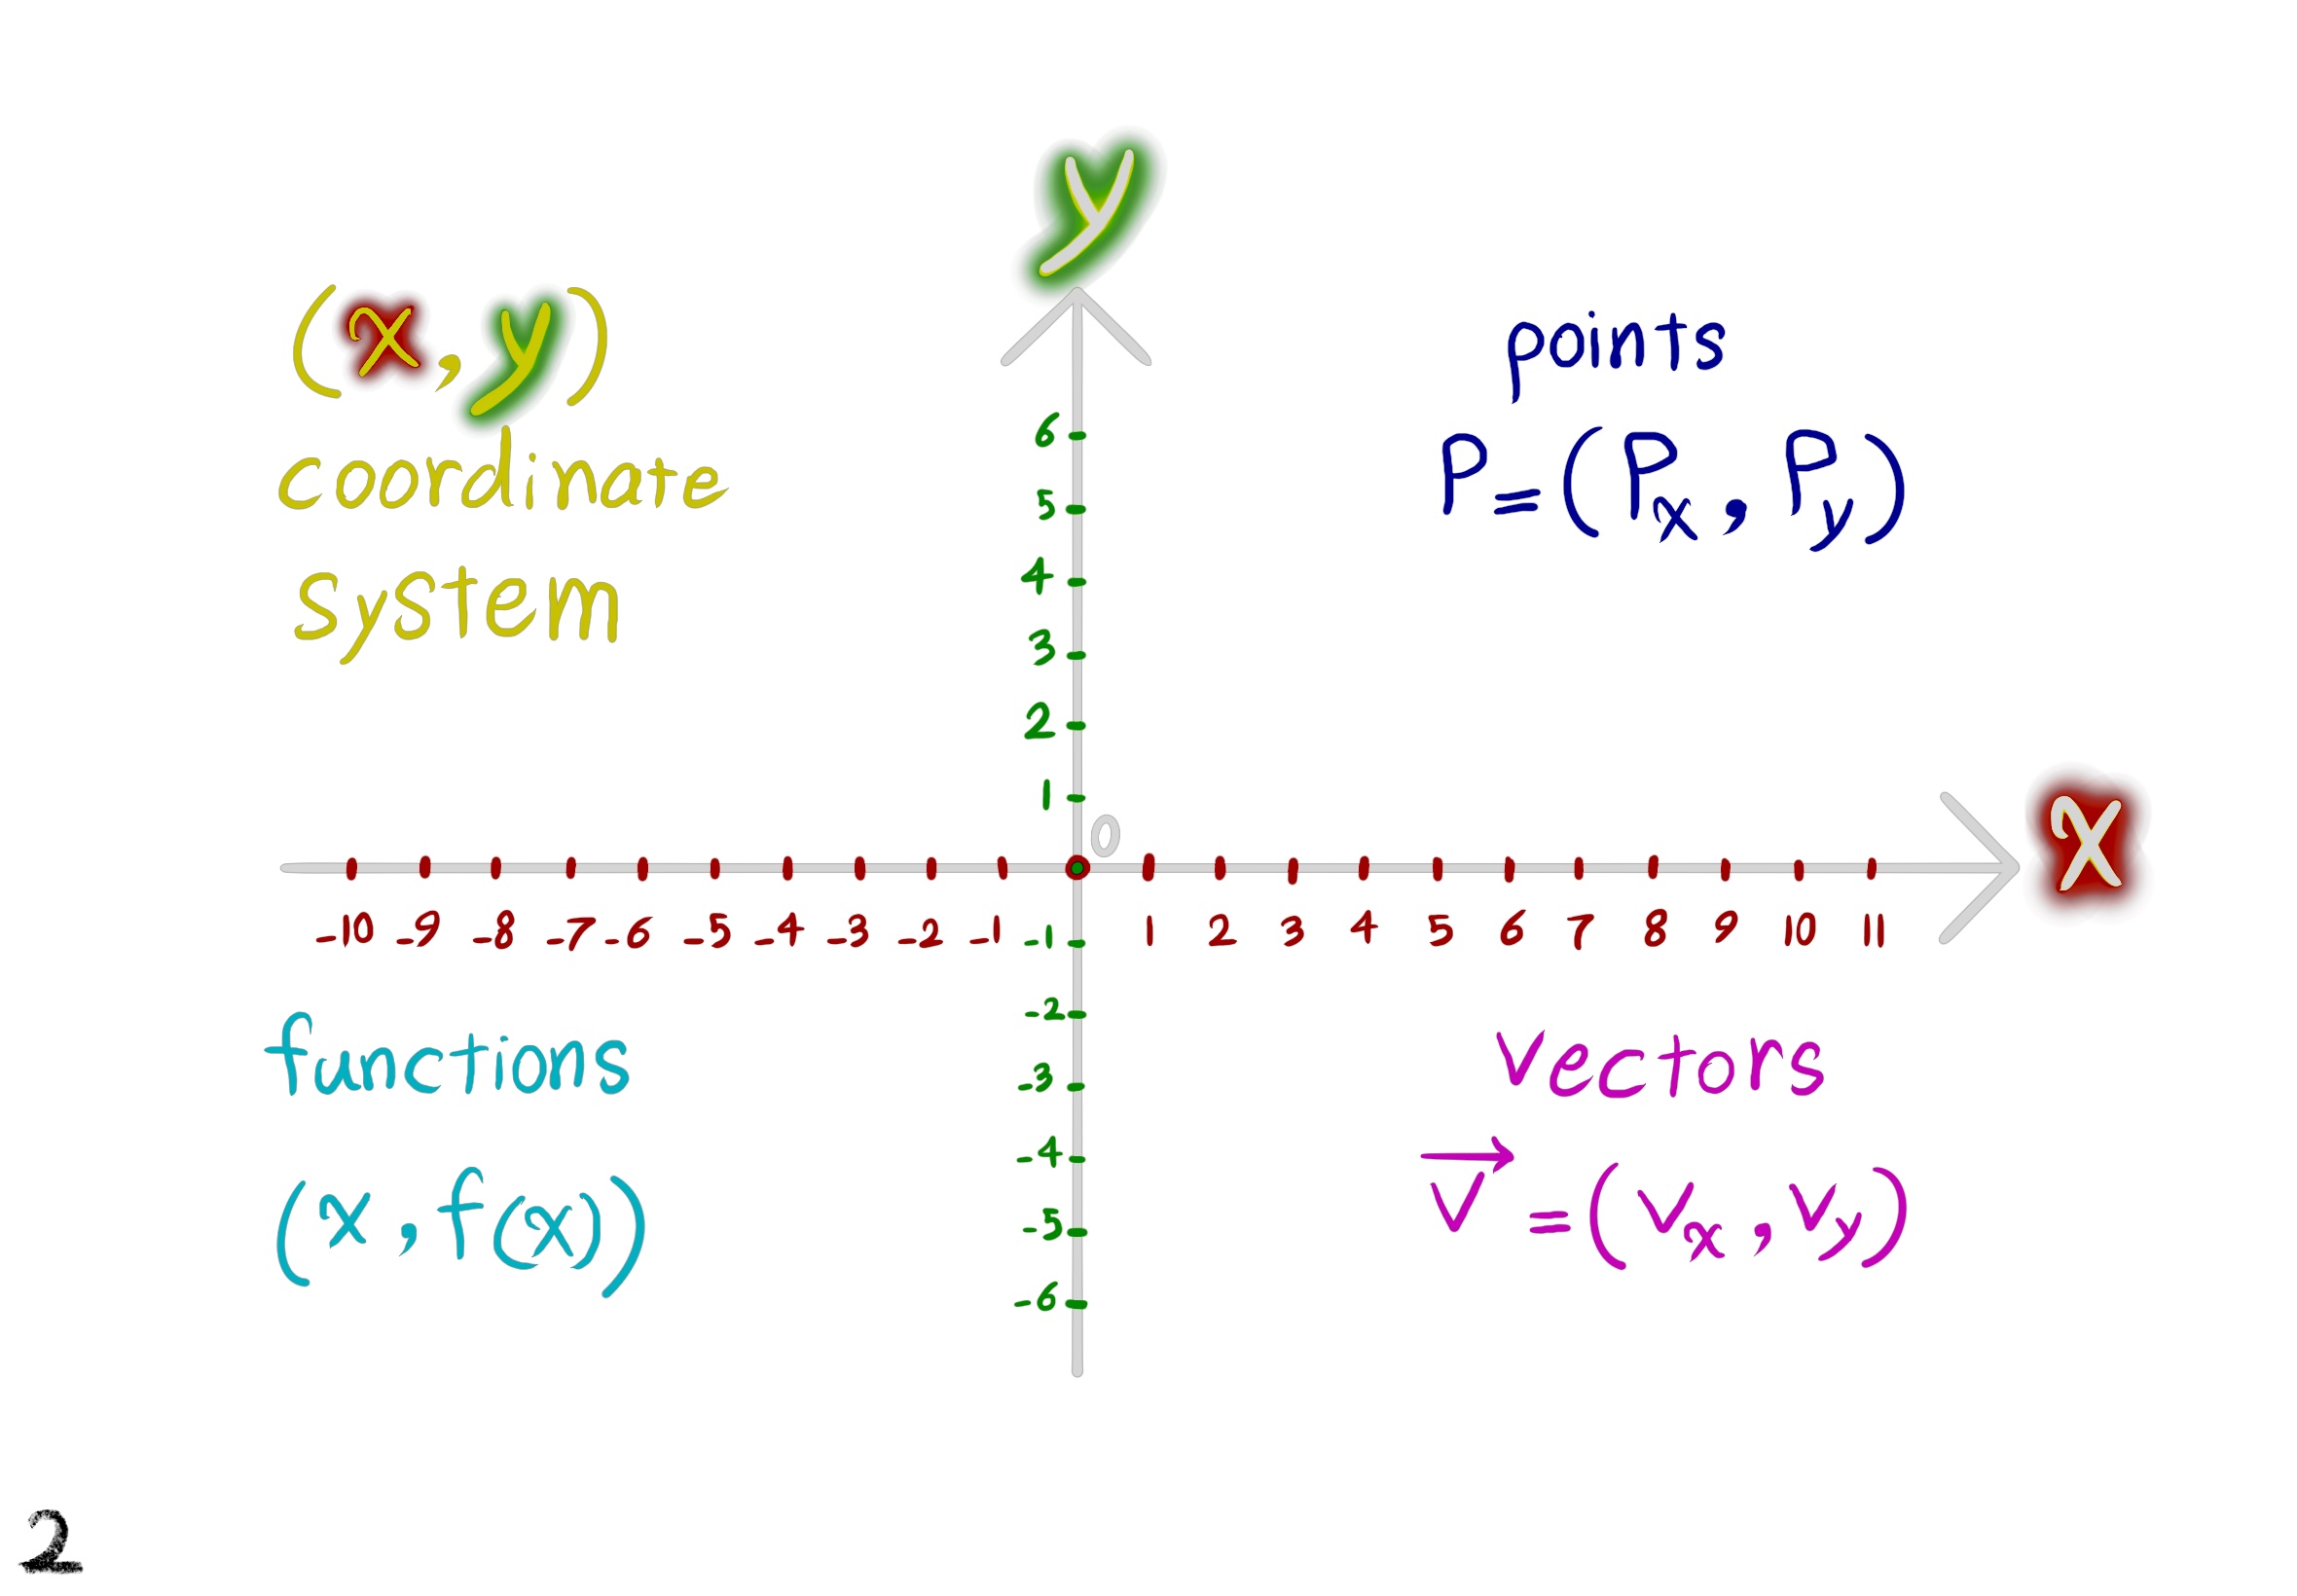 y
(x, y)
coordinate
system
points
P = (Px, Py)
6
5
4
3
2
1
0
x
-10 -9 -8 -7 -6 -5 -4 -3 -2 -1 1 2 3 4 5 6 7 8 9 10 11
-1
-2
-3
-4
-5
-6
functions
(x, f(x))
vectors
v⃗ = (vx, vy)
2